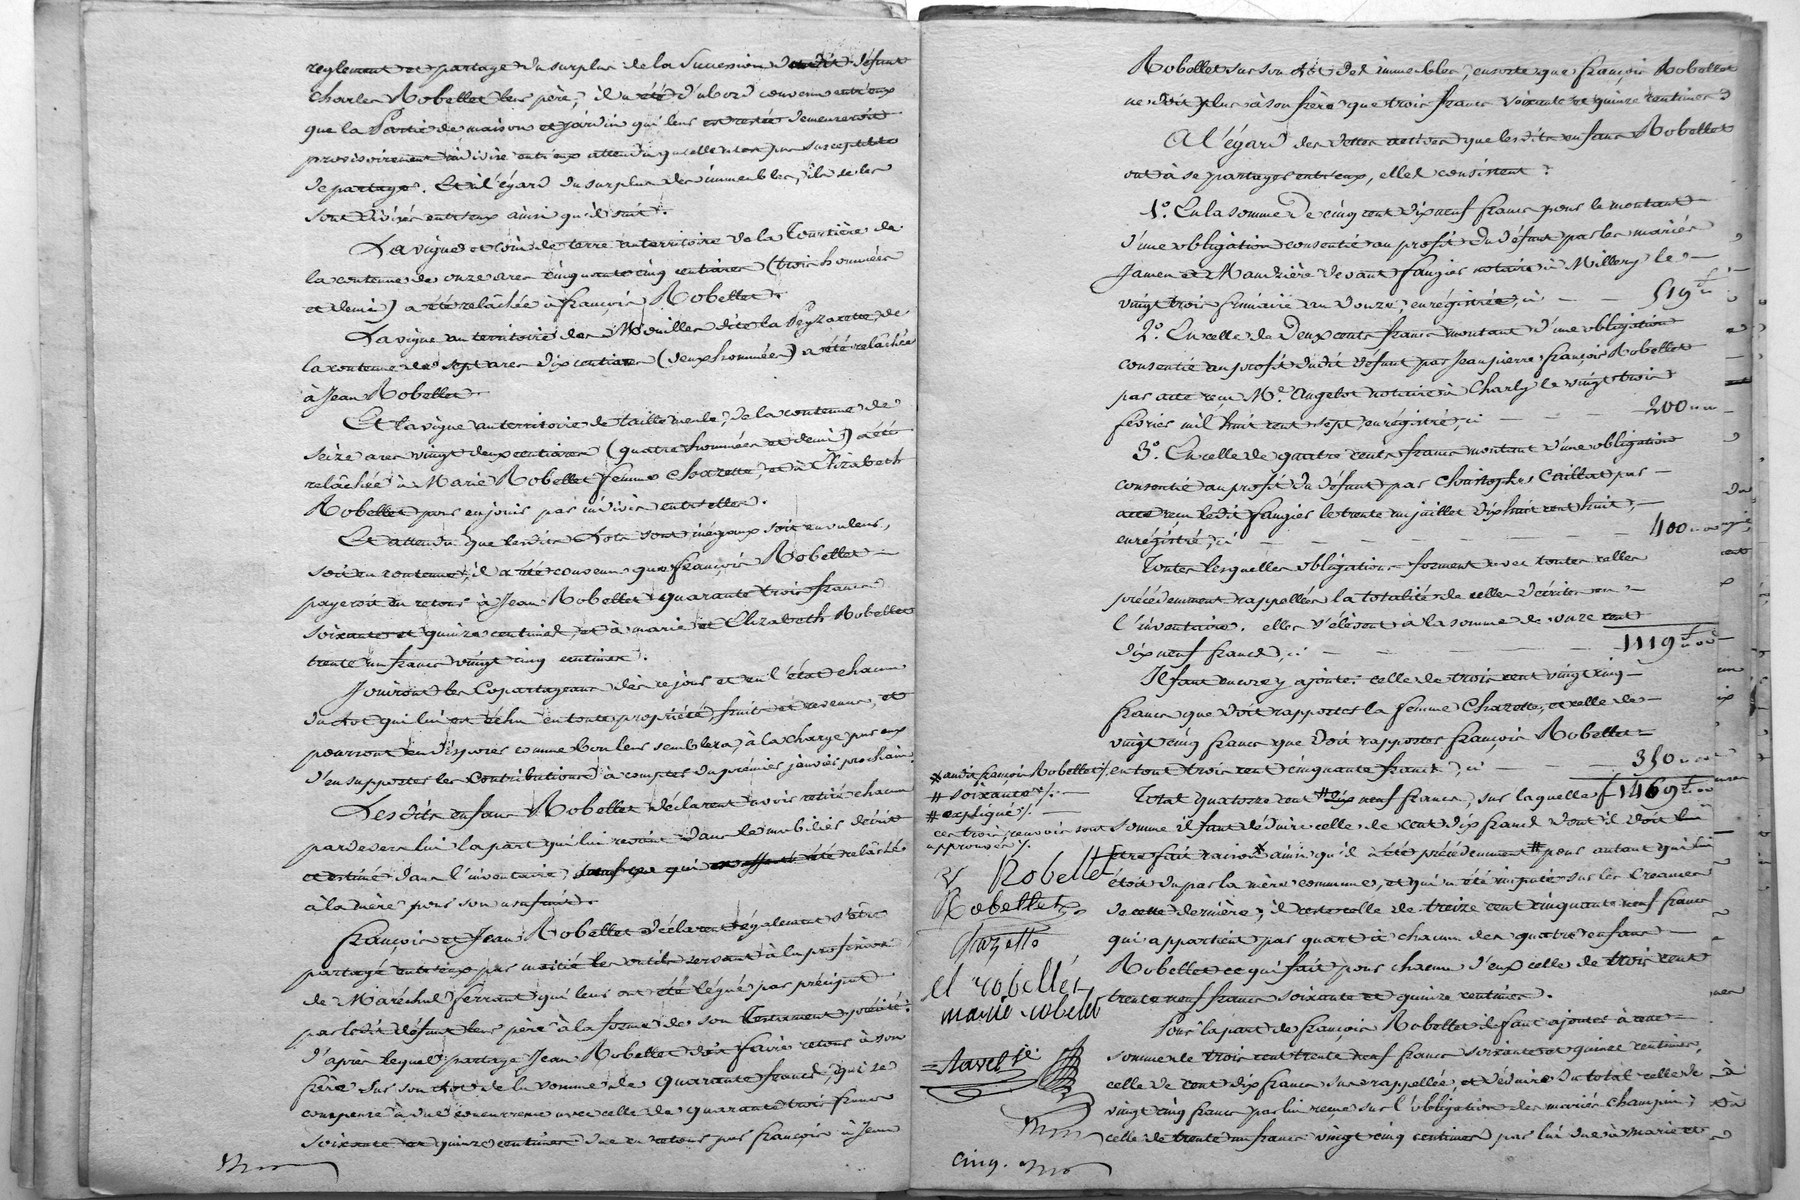 reglement et partage du surplus de la Succession dudit défunt
Charles Robellet leur père, il a été d'abord convenu entr'eux
que la Partie de maison et jardin qui leur est restée demeureroit
provisoirement indivise entr'eux attendu qu'elle n'est pas susceptible
de partage. Et à l'égard du surplus des immeubles, ils se les
sont divisés entr'eux ainsi qu'il suit.
La vigne et coin de terre au territoire de la Tourtière de
la contenue de onze ares cinquante cinq centiares (trois hommées
et demi) a été relâchée à françois Robellet.
La vigne au territoire des Mouilles dite la Peyzarette, de
la contenue de sept ares dix centiares (deux hommées) a été relâchée
à Jean Robellet.
Et la vigne au territoire de taillemende, de la contenue de
seize ares vingt deux centiares (quatre hommées et demi) a été
relâchée à Marie Robellet femme Chazette, et à Elizabeth
Robellet pour en jouir par indivis entr'elles.
Et attendu que lesdits Lots sont inégaux soit en valeur,
soit en contenue, il a été convenu que françois Robellet
payeroit en retour à Jean Robellet quarante trois francs
soixante et quinze centimes, et à marie et Elizabeth Robellet
trente un francs vingt cinq centimes.
Jouiront les Copartageans dès ce jour et en l'état chacun
du Lot qui lui est échu en toute propriété, fruits et revenus, et
pourront en disposer comme bon leur semblera, à la charge par eux
d'en supporter les contributions à compter du premier janvier prochain.
Lesdits enfans Robellet déclarent avoir retiré chacun
pardevers lui la part qui lui revient dans le mobilier décrit
et estimé dans l'inventaire, qui relâché
à la mère pour son usufruit.
françois et Jean Robellet déclarent également s'être
partagé entr'eux par moitié les outils servant à la profession
de Maréchal ferrant qui leur ont été légué par préciput
par ledit défunt leur père à la forme de son Testament précité;
d'après lequel partage Jean Robellet doit faire retour à son
frère sur son Lot de la somme de quarante francs, qui se
compense à due concurrence avec celle de quarante trois francs
soixante et quinze centimes due en retour par françois à Jean
Robellet sur son Lot des immeubles, ensorte que françois Robellet
ne doit plus à son frère que trois francs soixante et quinze centimes.
A l'égard des dettes actives que lesdits enfans Robellet
ont à se partager entr'eux, elles consistent:
1.° En la somme De cinq cent dix neuf francs pour le montant
d'une obligation consentie au profit du défunt par les mariés
Jamen et Mauzière devant faugier notaire à Millery le
vingt trois frimaire an douze, enregistrée, ci — — 519
2.° En celle de Deux cents francs montant d'une obligation
consentie au profit dudit défunt par Jean pierre françois Robellet
par acte reçu M.e Angelot notaire à Charly le vingt trois
fevrier mil huit cent sept, enregistré, ci — — — 200
3.° En celle de quatre cents francs montant d'une obligation
consentie au profit du défunt par Christophe Caillat par
acte reçu ledit faugier le trente un juillet dix huit cent huit,
enregistré, ci — — — — — 400
Toutes lesquelles obligations forment avec toutes celles
précédemment rappellées la totalité de celles décrites en
l'inventaire. elles s'élèvent à la somme de onze cent
dix neuf francs, ci — — — — 1119
Il faut encore y ajouter celle de trois cent vingt cinq
francs que doit rapporter la femme Chazette, et celle de
vingt cinq francs que doit rapporter françois Robellet
en tout trois cent cinquante francs, ci — — 350
Total quatorze cent # dix neuf francs, sur laquelle 1469
somme il faut déduire celle de cent dix francs dont il doit lui
etre fait raison * ainsi qu'il a été précédemment # pour autant qui lui
étoit du par la mère commune, et qui a été imputé sur les creances
de cette dernière; il reste celle de treize cent cinquante neuf francs
qui appartient par quart à chacun des quatre enfans
Robellet ce qui fait pour chacun d'eux celle de trois cent
trente neuf francs soixante et quinze centimes.
Pour la part de françois Robellet il faut ajouter à cette
somme de trois cent trente neuf francs soixante et quinze centimes,
celle de cent dix francs sus rappellée, et déduire du total celle de
vingt cinq francs par lui reçue sur l'obligation des mariés champin;
celle de trente un francs vingt cinq centimes par lui due à marie et
* audit françois Robellet /.
# soixante /.
# expliqué /.
ces trois renvois sont
approuvés /.
Robellet
Robellet
Chazette
el robellet
marie robellet
Ravel
cinq.